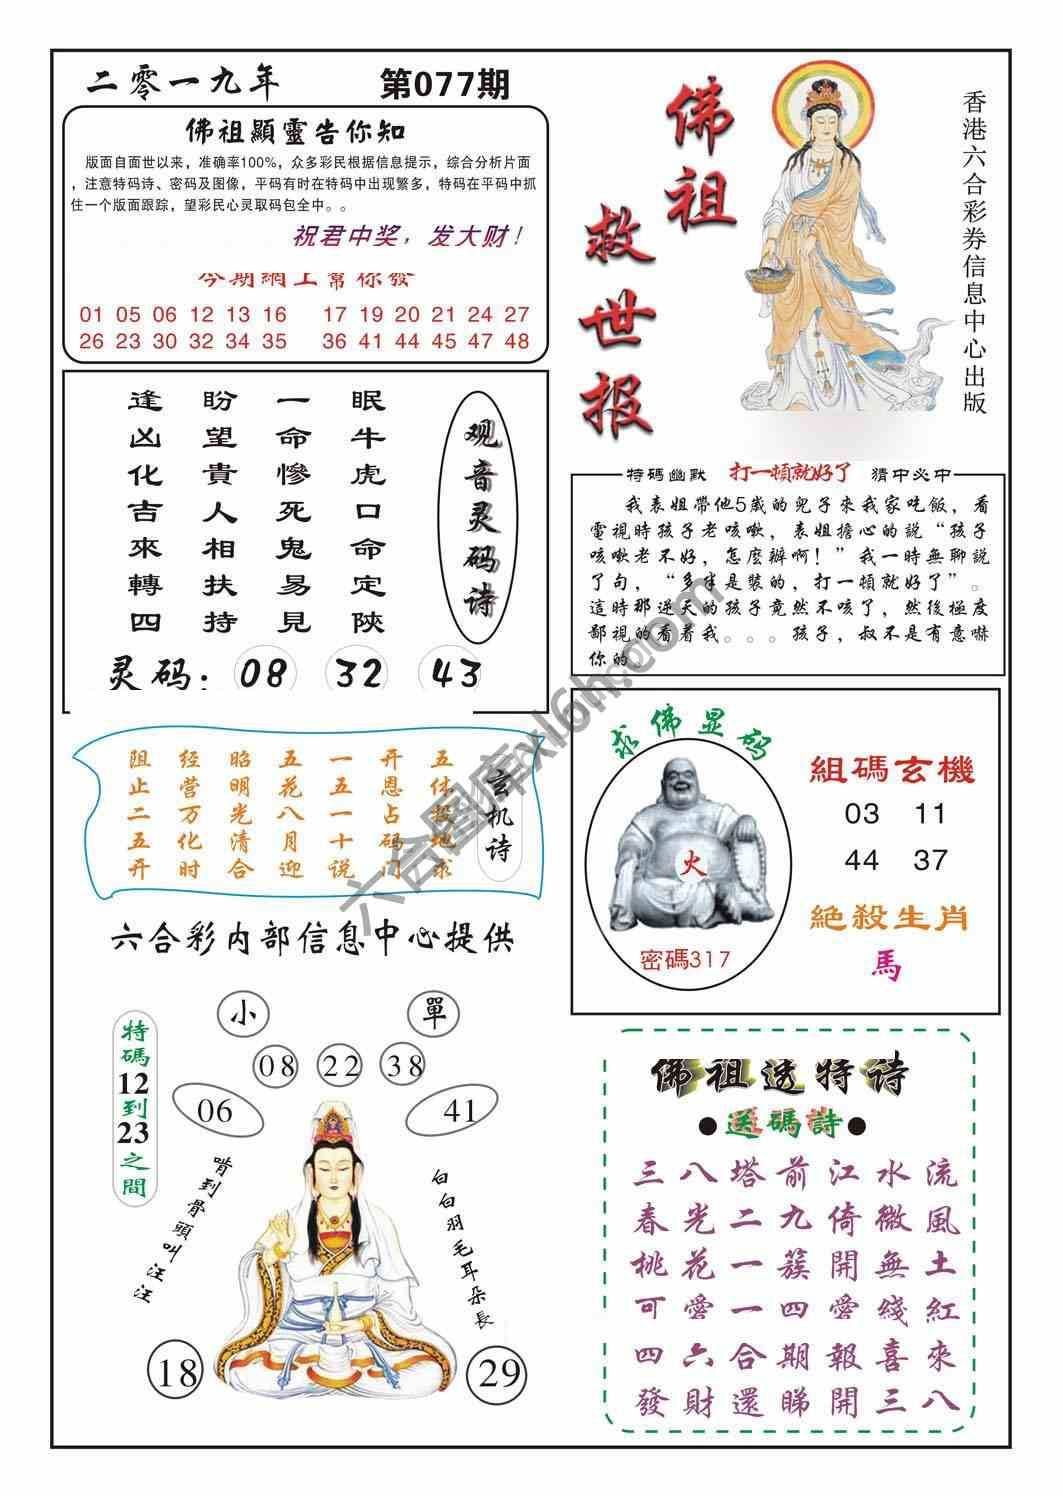 二零一九年 第077期
佛祖顯靈告你知
版面自面世以来，准确率100%，众多彩民根据信息提示，综合分析片面
，注意特码诗、密码及图像，平码有时在特码中出现繁多，特码在平码中抓
住一个版面跟踪，望彩民心灵取码包全中。。
祝君中奖，发大财！
今期網上幫你發
01 05 06 12 13 16 17 19 20 21 24 27
26 23 30 32 34 35 36 41 44 45 47 48
佛祖救世报
香港六合彩券信息中心出版
观音灵码诗
眠牛虎口命定陝
一命慘死鬼易見
盼望貴人相扶持
逢凶化吉來轉四
灵码：08 32 43
特碼幽默 打一頓就好了 猜中必中
我表姐帶他5歲的兒子來我家吃飯，看
電視時孩子老咳嗽，表姐擔心的説“孩子
咳嗽老不好，怎麽辦啊！”我一時無聊説
了句，“多半是裝的，打一頓就好了”。
這時那逆天的孩子竟然不咳了，然後極度
鄙視的看着我。。。孩子，叔不是有意嚇
你的。
玄机诗
五体投地求
开恩占码门
一五一十说
五花八月迎
昭明光清合
经营万化时
阻止二五开
求佛显码
火
密碼317
組碼玄機
03 11
44 37
絶殺生肖
馬
六合彩内部信息中心提供
小 單
08 22 38
06 41
特碼12到23之間
啃到骨頭叫汪汪
白白羽毛耳朵長
18 29
佛祖透特诗
●送碼詩●
三八塔前江水流
春光二九倚微風
桃花一簇開無土
可愛一四愛綫紅
四六合期報喜來
發財還睇開三八
六合图库xl6h.com